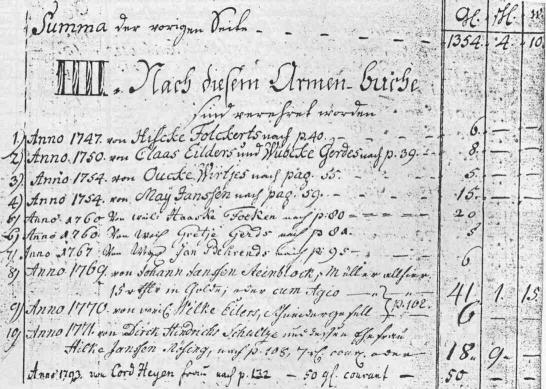 Gl. Sch. w.
Summa der vorigen Seite - - - - 1354. 4. 10.
IIII. Nach diesem Armen-buche
sind verehret worden
1) Anno 1747. von Hiscke Folckerts nach p. 40. - - - 6. - -
2) Anno. 1750. von Claas Eilders und Wübcke Gerdes nach p. 39. - - 8. - -
3) Anno 1754. von Oucke Wirtjes nach pag. 55. - - - 5. - -
4) Anno 1754. von Maÿ Janssen nach pag. 59. - - - 15. - -
6) Anno. 1760. Von Haacke Focken nach p: 80 - - - - 20
6) Anno 1760. Von Gretje Gerds nach p: 81. 5
7) Anno 1767. Von Jan Behrends nach p: 95 - 6
8) Anno 1769. von Johann Janssen Steinblock, Müller allhier,
15 in Golde, oder cum Agio - - 41. 1. 15.
9) Anno 1770. von Wilke Eilers, p. 102. 6
10) Anno 1771. von Dirck Hindrichs Schultze und dessen Ehefrau
Hilke Janssen Rösing, nach p. 108, 7 cour. oder 18. 9. -
Anno 1793. von Cord Heyen frau nach p. 132 - 50 gl. courant - 50 - -